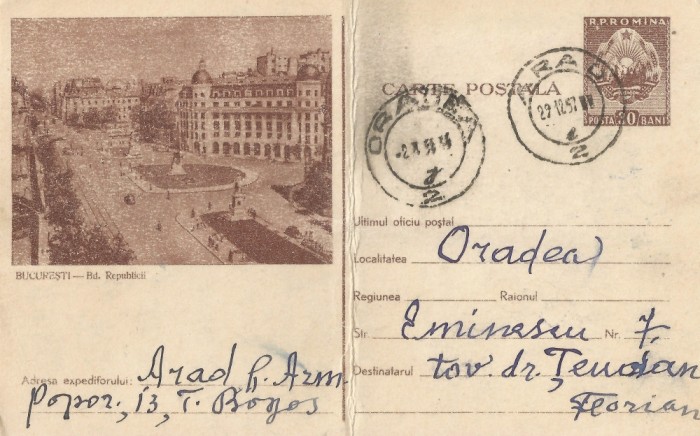 R.P.ROMINA
POSTA 20 BANI
CARTE POSTALA
ARAD
22 12 57
2
ORADEA
2
Ultimul oficiu poștal
Localitatea Oradea
Regiunea Raionul
Str. Eminescu Nr. 7,
Destinatarul tov. dr. Țeudan
Florian
BUCUREȘTI — Bd. Republicii
Adresa expeditorului: Arad h. Arm.
Popor., 13, T. Bogos